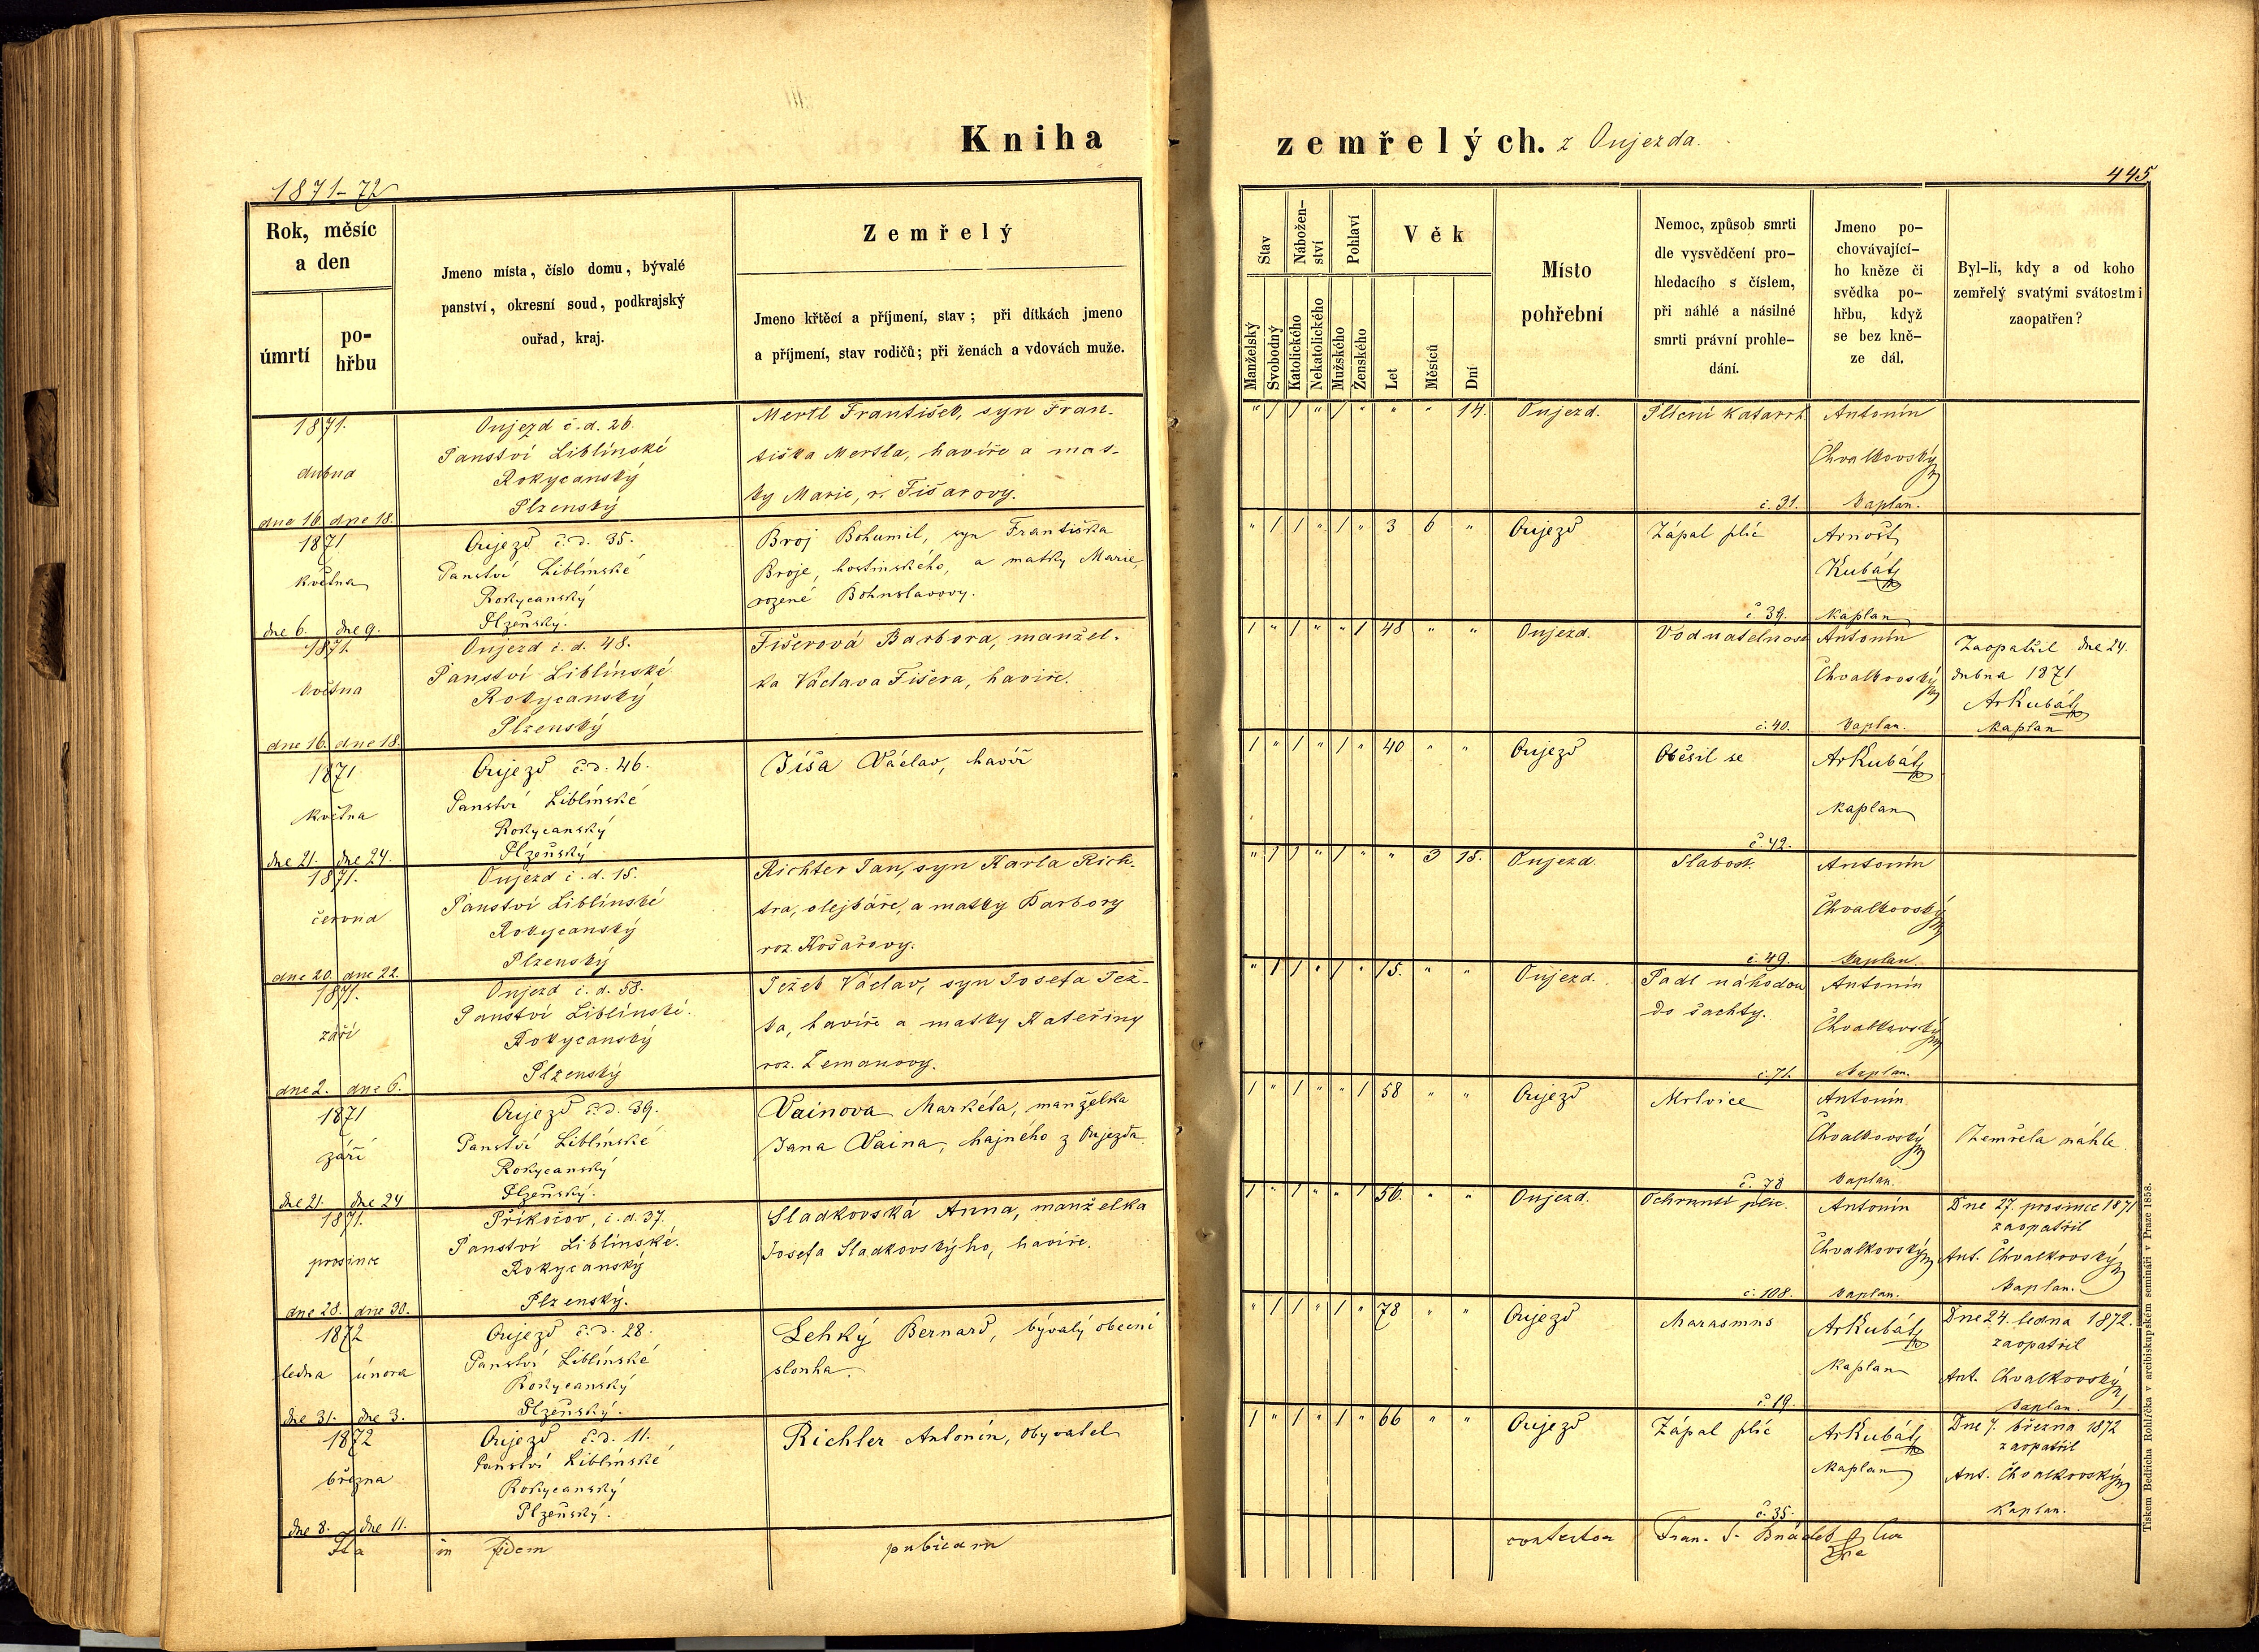 Kniha
zemřelých. z Oujezda.
1871-72
445
Rok, měsíc
a den
úmrtí
po-
hřbu
Jmeno místa, číslo domu, bývalé
panství, okresní soud, podkrajský
ouřad, kraj.
Zemřelý
Jmeno křtěcí a příjmení, stav; při dítkách jmeno
a příjmení, stav rodičů; při ženách a vdovách muže.
Stav
Nábožen-
ství
Pohlaví
Věk
Manželský
Svobodný
Katolického
Nekatolického
Mužského
Ženského
Let
Měsíců
Dní
Místo
pohřební
Nemoc, způsob smrti
dle vysvědčení pro-
hledacího s číslem,
při náhlé a násilné
smrti právní prohle-
dání.
Jmeno po-
chovávající-
ho kněze či
svědka po-
hřbu, když
se bez kně-
ze dál.
Byl-li, kdy a od koho
zemřelý svatými svátostmi
zaopatřen?
1871.
dubna
dne 16. dne 18.
Oujezd č. d. 26.
Panství Liblínské
Rokycanský
Plzenský
Mertl František, syn Fran-
tiška Mertla, havíře a mat-
ky Marie, r. Fišarovy.
" 1 1 " 1 " " " 14.
Oujezd.
Plícní katarrh
č. 31.
Antonín
Chvalkovský
kaplan.
1871
května
dne 6. dne 9.
Oujezd č. d. 35.
Panství Liblínské
Rokycanský
Plzeňský.
Broj Bohumil, syn Františka
Broje, hostinského, a matky Marie,
rozené Bohuslavovy.
" 1 1 " 1 " 3 6 "
Oujezd
Zápal plic
č. 39.
Arnošt
Kubát
kaplan
1871.
května
dne 16. dne 18.
Oujezd č. d. 48.
Panství Liblínské
Rokycanský
Plzenský
Fišerová Barbora, manžel-
ka Václava Fišera, havíře.
1 " 1 " " 1 48 " "
Oujezd.
Vodnatelnost
č. 40.
Antonín
Chvalkovský
kaplan.
Zaopatřil dne 24.
dubna 1871
ArKubát
kaplan
1871
května
dne 21. dne 24.
Oujezd č. d. 46.
Panství Liblínské
Rokycanský
Plzeňský
Jíša Václav, havíř
1 " 1 " 1 " 40 " "
Oujezd
Oběsil se
č. 42.
ArKubát
kaplan
1871.
června
dne 20. dne 22.
Oujezd č. d. 15.
Panství Liblínské
Rokycanský
Plzenský
Richter Jan, syn Karla Rich-
tra, olejkáře, a matky Barbory
roz. Košařovy.
" 1 1 " 1 " " 3 15.
Oujezd.
Slabost.
č. 49.
Antonín
Chvalkovský
kaplan.
1871.
září
dne 2. dne 6.
Oujezd č. d. 58.
Panství Liblínské.
Rokycanský
Plzenský
Ježek Václav, syn Josefa Jež-
ka, havíře a matky Kateřiny
roz. Zemanovy.
" 1 1 " 1 " 15. " "
Oujezd.
Padl náhodou
do šachty.
č. 71.
Antonín
Chvalkovský
kaplan.
1871
září
dne 21. dne 24
Oujezd č. d. 39.
Panství Liblínské
Rokycanský
Plzeňský.
Vainova Markéta, manželka
Jana Vaina, hajného z Oujezda.
1 " 1 " " 1 58 " "
Oujezd
Mrtvice
č. 78
Antonín
Chvalkovský
kaplan.
Zemřela náhle
1871.
prosince
dne 28. dne 30.
Příkošov, č. d. 37.
Panství Liblínské.
Rokycanský
Plzenský.
Sladkovská Anna, manželka
Josefa Sladkovskýho, havíře.
1 " 1 " " 1 56. " "
Oujezd.
Ochrnutí plic.
č. 108.
Antonín
Chvalkovský
kaplan.
Dne 27. prosince 1871
zaopatřil
Ant. Chvalkovský
kaplan.
1872
ledna února
dne 31. dne 3.
Oujezd č. d. 28.
Panství Liblínské
Rokycanský
Plzeňský.
Lehký Bernard, bývalý obecní
slouha.
" 1 1 " 1 " 78 " "
Oujezd
Marasmus
č. 19.
ArKubát
kaplan
Dne 24. ledna 1872.
zaopatřil
Ant. Chvalkovský
kaplan.
1872
března
dne 8. dne 11.
Oujezd č. d. 11.
Panství Liblínské
Rokycanský
Plzeňský.
Richter Antonín, obyvatel
1 " 1 " 1 " 66 " "
Oujezd
Zápal plic
č. 35.
ArKubát
kaplan
Dne 7. března 1872
zaopatřil
Ant. Chvalkovský
kaplan.
Ita in fidem publicam
contestor Fran. S.
Tiskem Bedřicha Rohlíčka v arcibiskupském semináři v Praze 1858.